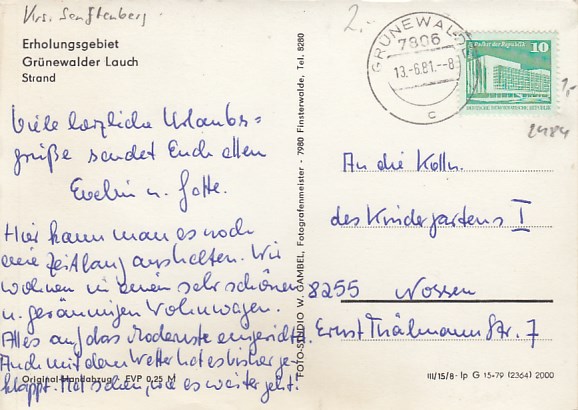 Krs. Senftenberg
2.-
Erholungsgebiet
Grünewalder Lauch
Strand
GRÜNEWALDE
7806
13.-6.81.--8
c
Palast der Republik 10
DEUTSCHE DEMOKRATISCHE REPUBLIK
1,-
2484
Viele herzliche Urlaubs=
grüße sendet Euch allen
Evelin u. Gatte.
Hier kann man es noch
eine Zeitlang aushalten. Wir
wohnen in einem sehr schönen
u. geräumigen Wohnwagen.
Alles auf das Modernste eingerichtet.
Auch mit dem Wetter hat es bisher ge-
klappt. Mal sehen, wie es weiter geht.
Original-Handabzug EVP 0,25 M
FOTO-STUDIO W. GAMBEL, Fotografenmeister - 7980 Finsterwalde, Tel. 8280
An die Kolln.
des Kindergartens I
8255 Nossen
Ernst Thälmann Str. 7
III/15/8-Ip G 15-79 (2364) 2000